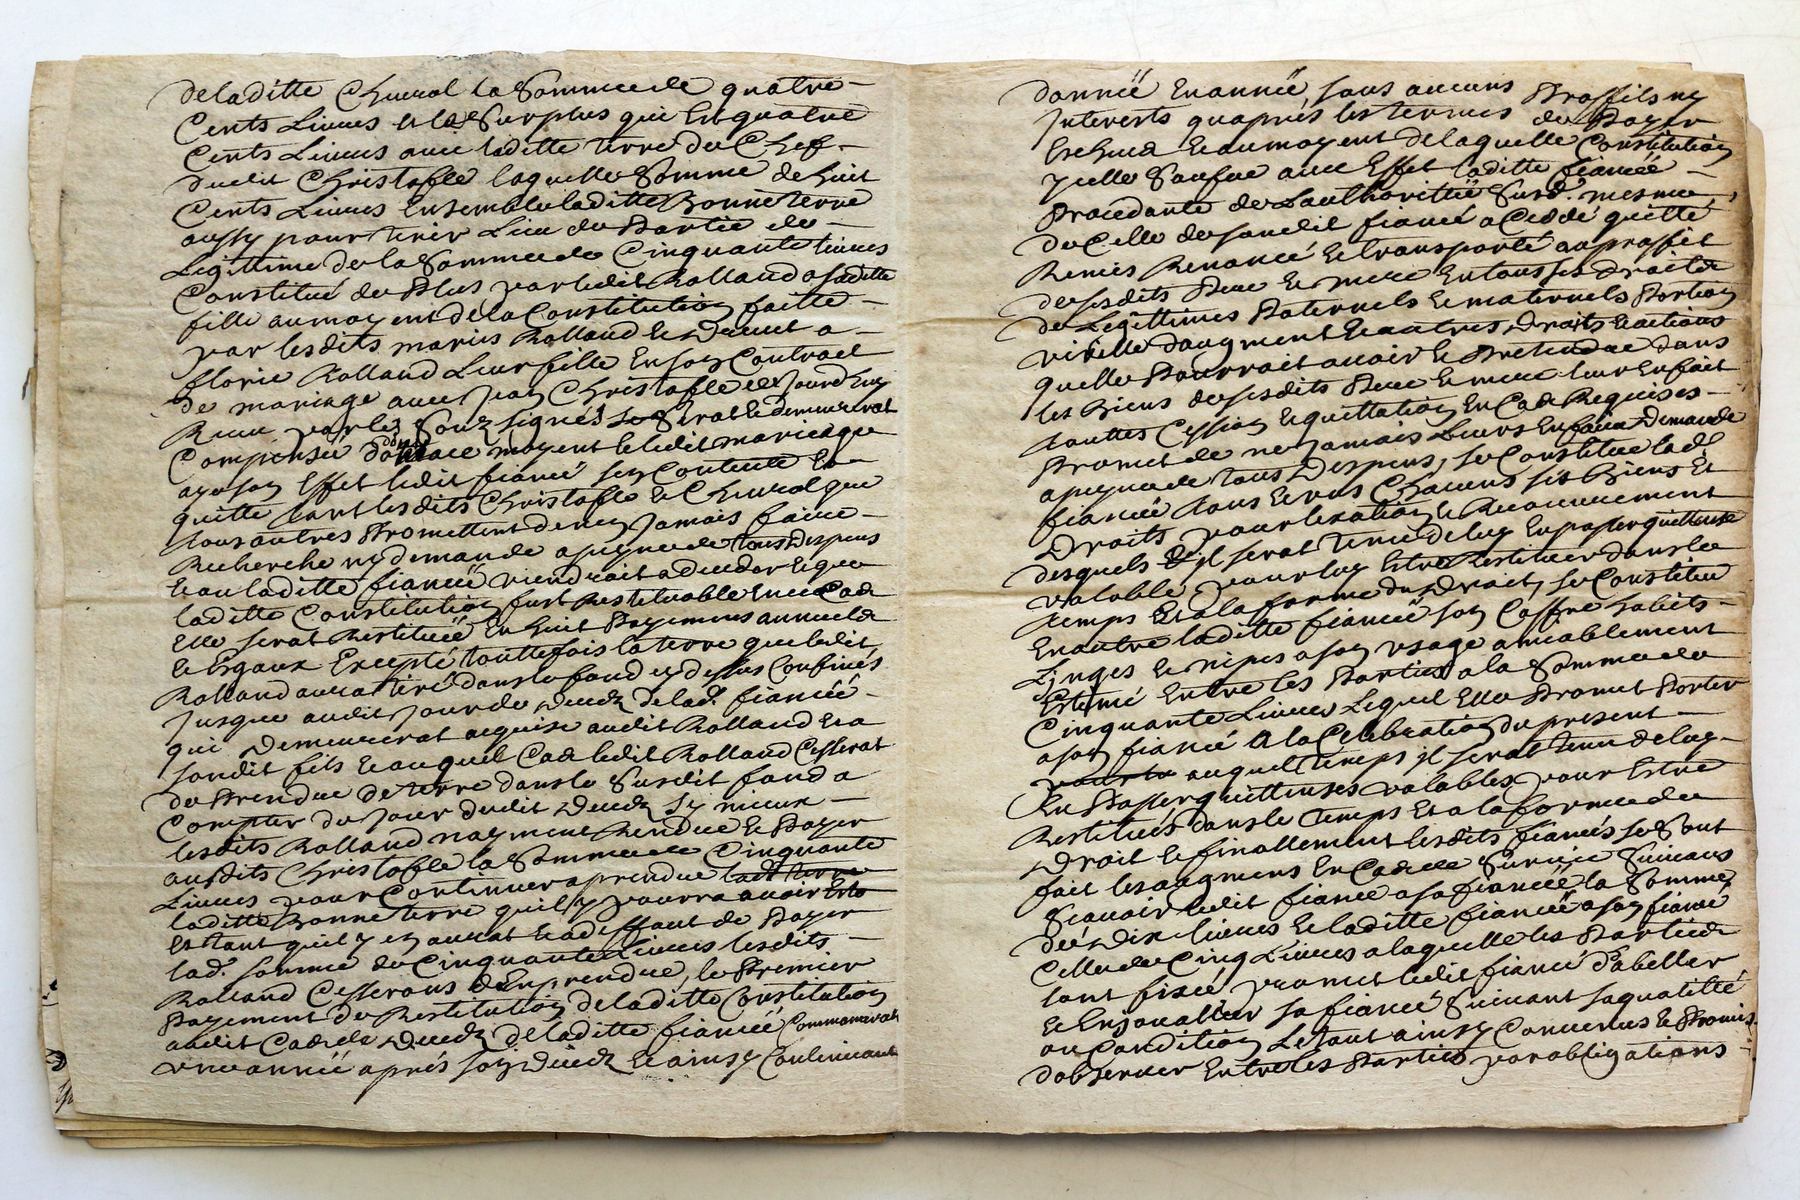 de laditte Cheural la Somme de quatre
Cents Liures et le Surplus qui Est quatre
Cents Liures auec laditte terre du Chef
dudit Christofle laquelle Somme de huit
Cents Liures Ensemble laditte Bonne terre
aussy pour tenir Lieu de Partie de
Legittime de la Somme de Cinquante liures
Constitué de Plus par ledit Rolland a saditte
fille au moyent de la Constitution faitte
par lesdits mariés Rolland et a
florie Rolland Leur fille En son Contract
de mariage auec Jean Christofle Ce Jourdhuy
Receu par les Souz signés se Serat et demeurerat
Compensée moyent le ledit mariage
aye son Effet ledit fiancé sen Contente Et
quitte tant lesdits Christofle et Cheural que
tous autres Promettent de ney Jamais faire
Recherche ny demande a peyne de tous Despens
Et au laditte fiancée viendrait a deceder Et que
laditte Constitution fust Restituable En ce Cas
Elle serat Restituée En huit Payemens annuels
et Egaux Excepté touttefois la terre que ledit
Rolland aura tiré dans le fond cy dessus Confinés
Jusque audit Jour de deceds de lad. fiancée
qui Demeurerat acquise audit Rolland Et a
sondit fils Et auquel Cas ledit Rolland Cesserat
de Prendre de terre dans le Susdit fond a
Compter du Jour dudit deceds sy mieux
lesdits Rolland nayment Rendre et Payer
ausdits Christofle la Somme de Cinquante
Liures pour Continuer a prendre
laditte Bonne terre quil y pourra auoir
Et tant quil y en aurat Et a deffaut de Payer
lad. somme de Cinquante Liures lesdits
Rolland Cesserons den prendre, le Premier
Payement de Restitution de laditte Constitution
audit Cas de deceds de laditte fiancée Commancerat
vne année aprés son deceds Et ainsy Continuant
dannée En année sans aucuns Proffits ny
Interests quaprés les termes de Payer
Escheus Et au moyent de laquelle Constitution
ycelle Saufue auec Effet laditte fiancée
Procedante de Lauthorittée Susd. mesme
de Celle de sondit fiancé a Ceddé quitté
Remis Renoncé Et transporté au proffit
de sesdits Pere Et mere En tous ses droits
de Legittimes Paternels Et maternels Portion
virille daugment Et autres Droits Et actions
quelle Pourrait auoir Et Pretendre dans
les biens de sesdits Pere Et mere leur En fait
touttes Cession Et quittation En Cas Requises
Promet de ne Jamais Leurs En faire Demande
a peyne de tous Despens, se Constitue lad.
fiancée tous Et vns Chacuns ses biens Et
Droits pour lexation Et Recouurement
desquels il serat tenu de luy En passer quittance
valable pour luy Estre Restituer dans le
temps Et a la forme du Droit, se Constitue
En outre laditte fiancée son Coffre habits
Linges Et nipes a son vsage amiablement
Estimé Entre les Parties a la Somme de
Cinquante Liures Lequel Elle Promet Porter
a son fiancé a la Celebration du present
auquel temps il serat tenu de luy
En Passer quittances valables pour Estre
Restitués dans le temps Et a la forme du
Droit Et finallement lesdits fiancés se Sont
fait les augmens En Cas de Suruie Suiuans
Scauoir ledit fiancé a sa fiancée la Somme
de Dix liures Et laditte fiancée a son fiancé
Celle de Cinq Liures a laquelle les Parties
lont fixé, promet ledit fiancé dabiller
Et Enjoualler sa fiancée Suiuant sa qualitté
ou Condition Le tout ainsy Conuenus Et Promis
dobseruer Entre les Parties par obligations